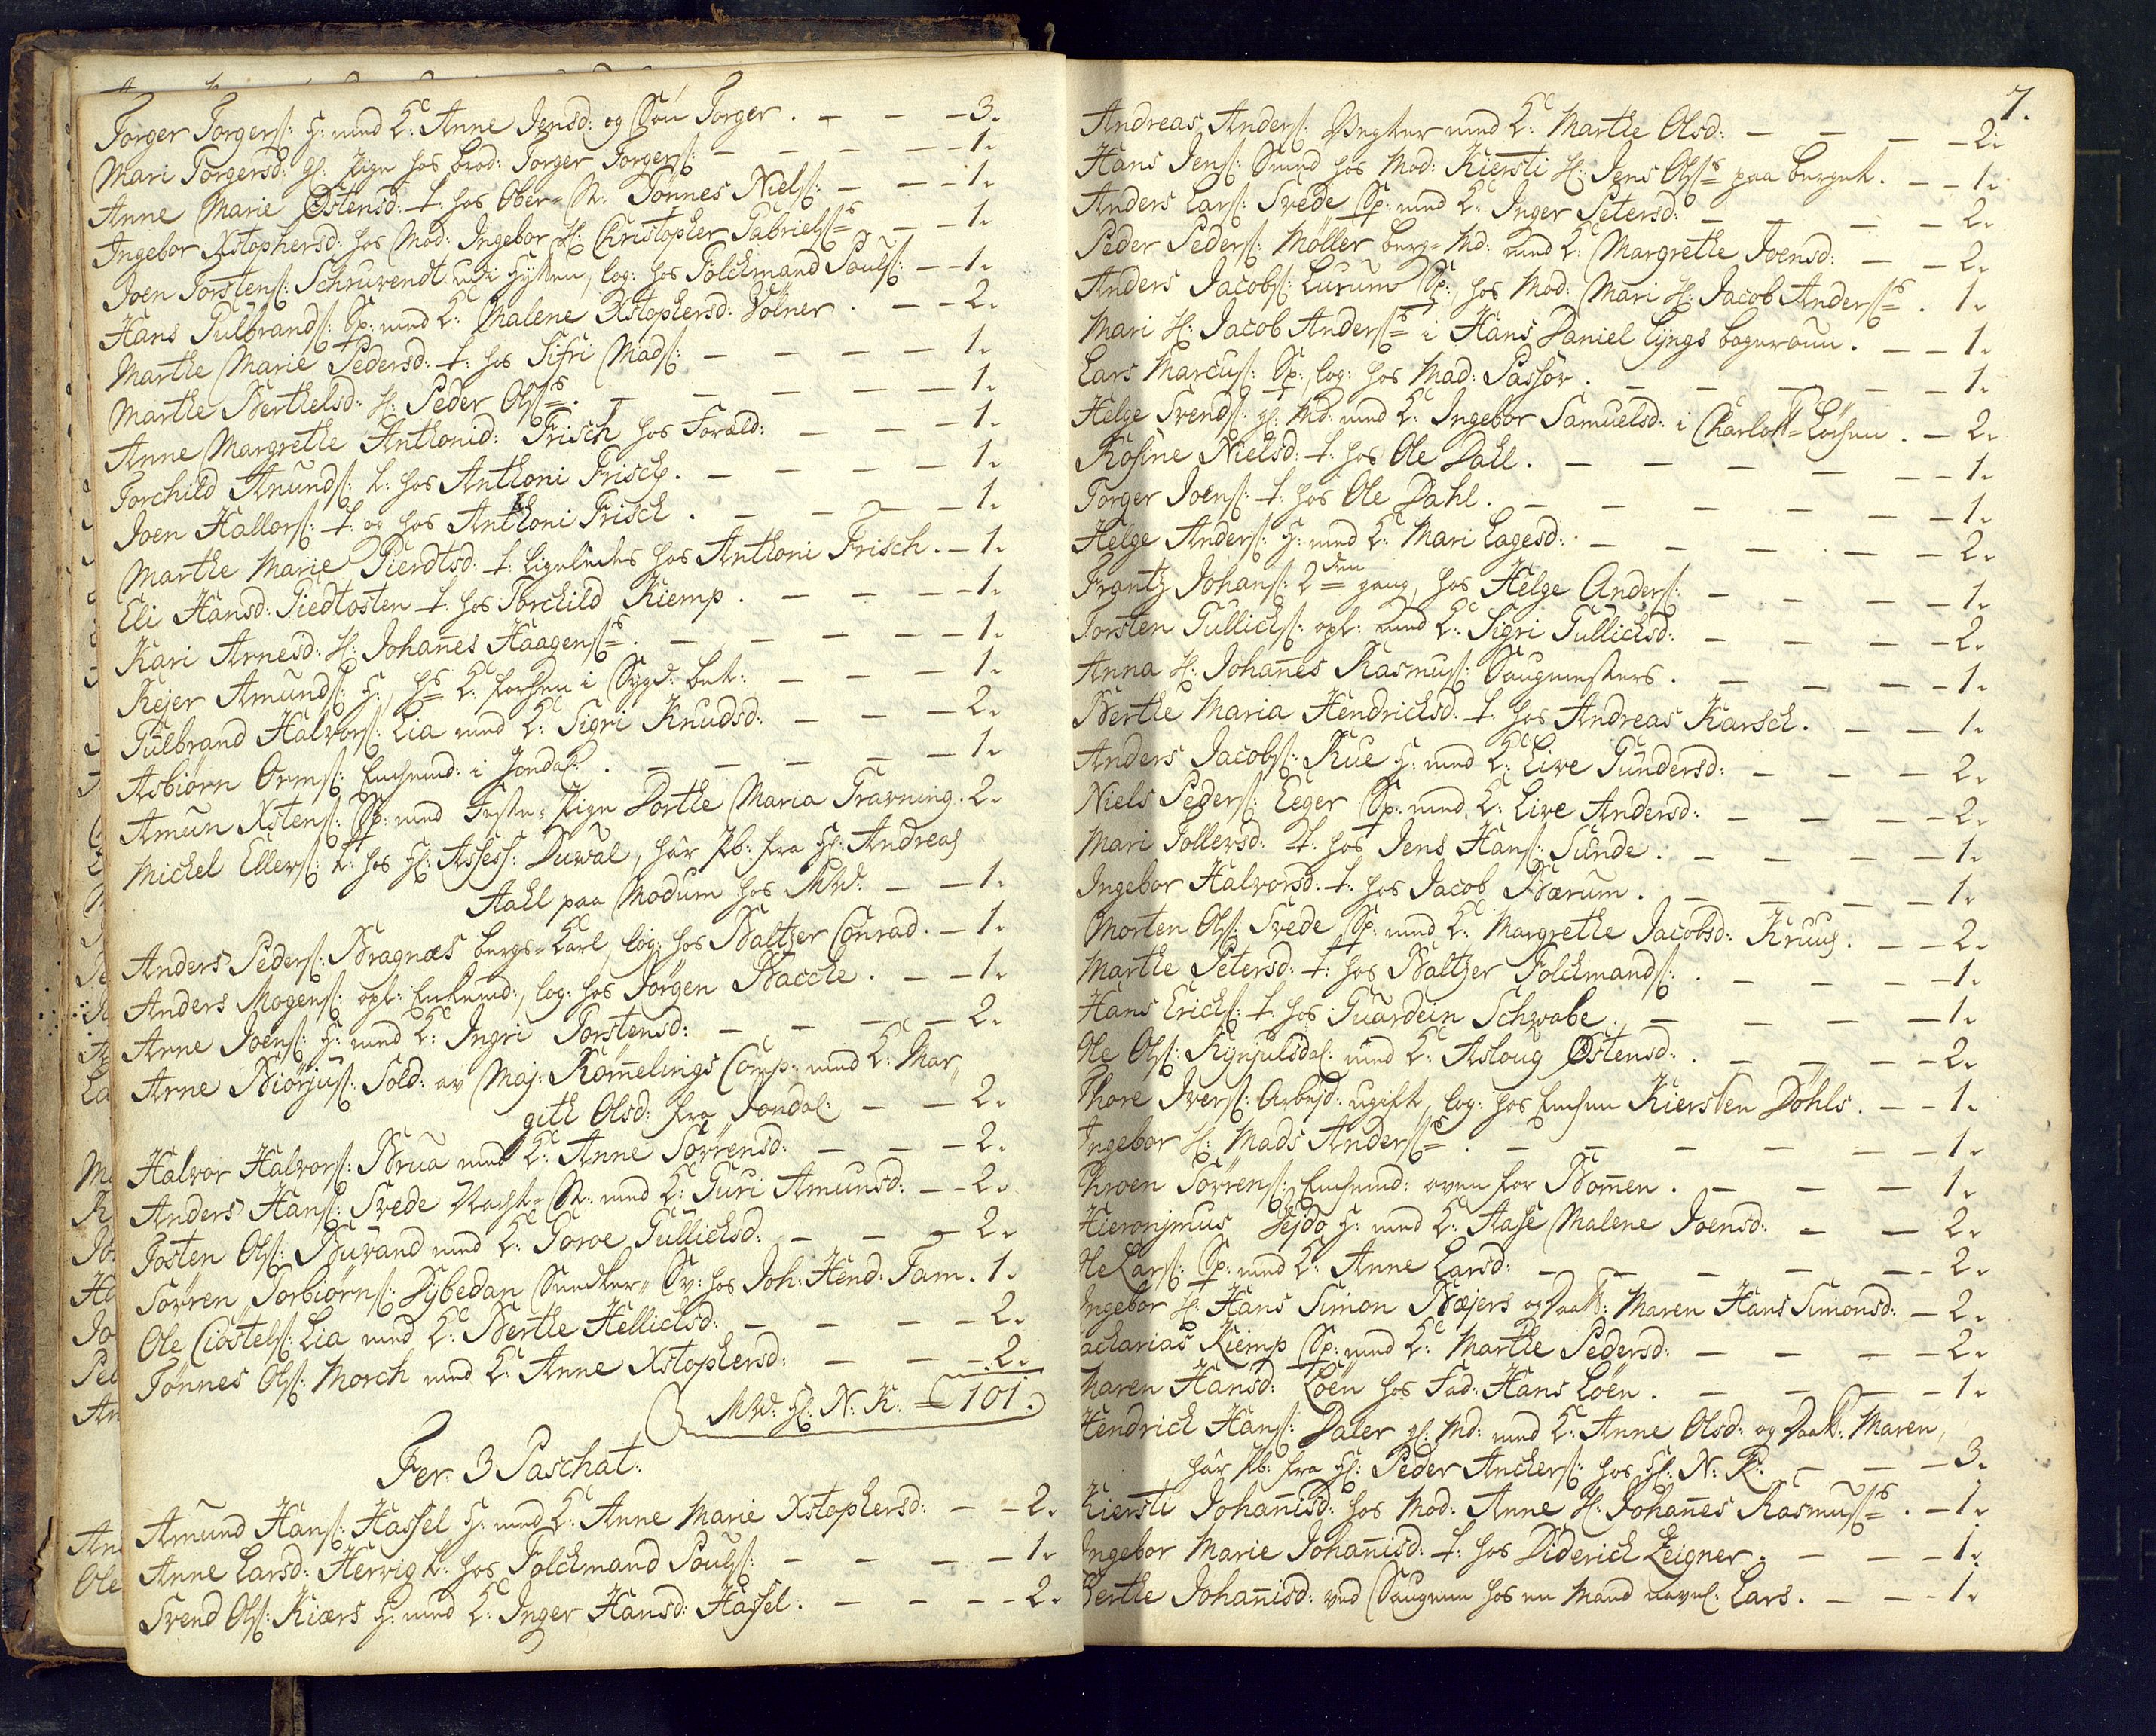 Torger Torgers: H: med K: Anne Jensd: og Søn Torger. — — — 3.
Mari Torgersd: gl: Pige hos brod: Torger Torgers: — — — — 1.
Anne Marie Østensd: t: hos Ober-St: Tønnes Niels: — — — 1.
Ingebor Xstophersd: hos Mod: Ingebor Chrisopher Gabriels — — 1.
Joen Torstens: Schruvendt udi Hytten, log: hos Folckmand Pouls: — 1.
Hans Gulbrands: Sp: med K: Malene Xstophersd: Volner. — — 2.
Marthe Marie Pedersd: t: hos Sifri Mads: — — — — 1.
Marthe Berthelsd: Peder Ols — — — — 1.
Anne Margrethe Anthonid: Frisch hos Foræld: — — — 1.
Torchild Anunds: t: hos Anthoni Frisch. — — — — 1.
Joen Hallors: t: og hos Anthoni Frisch. — — — — 1.
Marthe Marie Pierdtsd: t: ligeledes hos Anthoni Frisch. — 1.
Eli Hansd: Giedtosten t: hos Torchild Kiemp. — — — 1.
Kari Arnesd: Johanes Haagens — — — — 1.
Rejer Amunds: H: K: i — — — 1.
Gulbrand Halvors: Lia med K: Sigri Knudsd: — — — 2.
Asbiørn Orms: Enchemd: i Jondal. — — — — 1.
Amun Xstens: Sp: med Feste-Pige Dorthe Maria Gravning. 2.
Michel Ellers: t: hos Hl: Assess: Duwal, hâr Pb: fra Hl: Andreas
Stahl paa Modum hos MW: — — 1.
Anders Peders: Bragnæs bergs-Karl, log: hos Baltzer Conrad. — 1.
Anders Mogens: opl: Enkemd:, log: hos Jørgen Bacche. — — 1.
Arne Joens: H: med K: Ingri Torstensd: — — — — 2.
Arne Biørjus: Sold: av Maj: Romelings Comp: med K: Mar„
gith Olsd: fra Jondal: — — 2.
Halvor Halvors: Brua med K: Anne Sørrensd: — — — 2.
Anders Hans: Svede Nacht-St: med K: Guri Amunsd: — — 2.
Josten Ols: Buvand med K: Gorve Gullichsd: — — — 2.
Sørren Torbiørns: Dybedan Smelter„ Sv: hos Joh: Hend: Fam. 1.
Ole Ciøstels: Lia med K: Berthe Hellichsd: — — — — 2.
Tønnes Ols: Morch med K: Anne Xstophersd: — — — 2.
MW: Hl: N: K: = 101.
Fer: 3 Paschat:
Amund Hans: Hassel H: med K: Anne Marie Xstophersd: — — 2.
Anne Larsd: Hervig t: hos Folckmand Pouls: — — — — 1.
Svend Ols: Kiærs H: med K: Inger Hansd: Hassel. — — — — 2.
7.
Andreas Anders: med K: Marthe Olsd: — — — — 2.
Hans Jens: Smed hos Mod: Kiersti Jens Ols paa berget. — — 1.
Anders Lars: Svede Sp: med K: Inger Petersd: — — — — 2.
Peder Peders: Møller berg-Md: med K: Margrethe Joensd: — — 2.
Anders Jacobs: Lurum Sp:, hos Mod: Mari Jacob Anders. 1.
Mari Jacob Anders i Hans Daniel Lyngs — — 1.
Lars Marcus: Sp:, log: hos Mad: Passør. — — — — 1.
Helge Svends: gl: Md: med K: Ingebor Samuelsd: i Charlott- — 2.
Rosine Nielsd: t: hos Ole Dahl. — — — — — 1.
Torger Joens: t: hos Ole Dahl. — — — — — 1.
Helge Anders: H: med K: Mari Lagesd: — — — — 2.
Frantz Johans: 2den gang, hos Helge Anders: — — — — 1.
Torsten Gullichs: opl: med K: Sigri Gullichsd: — — — — 2.
Anna Johanes Rasmus: Saugmesters. — — — — 1.
Berthe Maria Hendrichsd: t: hos Andreas Karsch. — — — 1.
Anders Jacobs: Rue H: med K: Live Gundersd: — — — — 2.
Niels Peders: Eeger Sp: med K: Live Andersd: — — — — 2.
Mari Tollersd: t: hos Jens Hans: Sunde. — — — — 1.
Ingebor Halvorsd: t: hos Jacob Bærum. — — — — 1.
Morten Ols: Svede Sp: med K: Margrethe Jacobsd: Kruus. — — 2.
Marthe Petersd: t: hos Baltzer Folckmands: — — — — 1.
Hans Erichs: t: hos Guardein Schwabe. — — — — 1.
Ole Ols: Rynjulsdal: med K: Asloug Østensd: — — — — 2.
Thore Ivers: Arbejd: ugift, log: hos Enchen Kiersten Døhls. — — 1.
Ingebor Mads Anders — — — — — 1.
Throen Sørrens: Enchemd: oven for Bomen. — — — 1.
Hieronijmus Sejdø H: med K: Aase Malene Joensd: — — 2.
Ole Lars: Sp: med K: Anne Larsd: — — — — — 2.
Ingebor Hans Simon Bæjers og Daat: Maren Hans Simonsd: — 2.
Zacharias Kiemp Sp: med K: Marthe Pedersd: — — — — 2.
Maren Hansd: Løen hos Fad: Hans Løen. — — — — 1.
Hendrich Hans: Daler gl: Md: med K: Anne Olsd: og Daat: Maren,
hâr Pb: fra Hl: Peder Anchers: hos Hl: N: K: — — — 3.
Kiersti Johanisd: hos Mod: Anne Johanes Rasmus — 1.
Ingebor Marie Johanisd: t: hos Diderich Zeigner. — — — 1.
Berthe Johanisd: ved Saugene hos en Mand navnl: Lars. — — — 1.